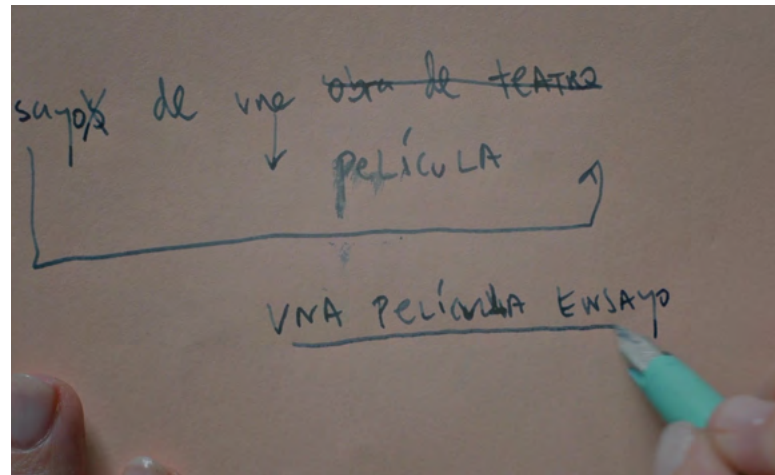 sayo de una obra de teatro
PELÍCULA
UNA PELÍCULA ENSAYO